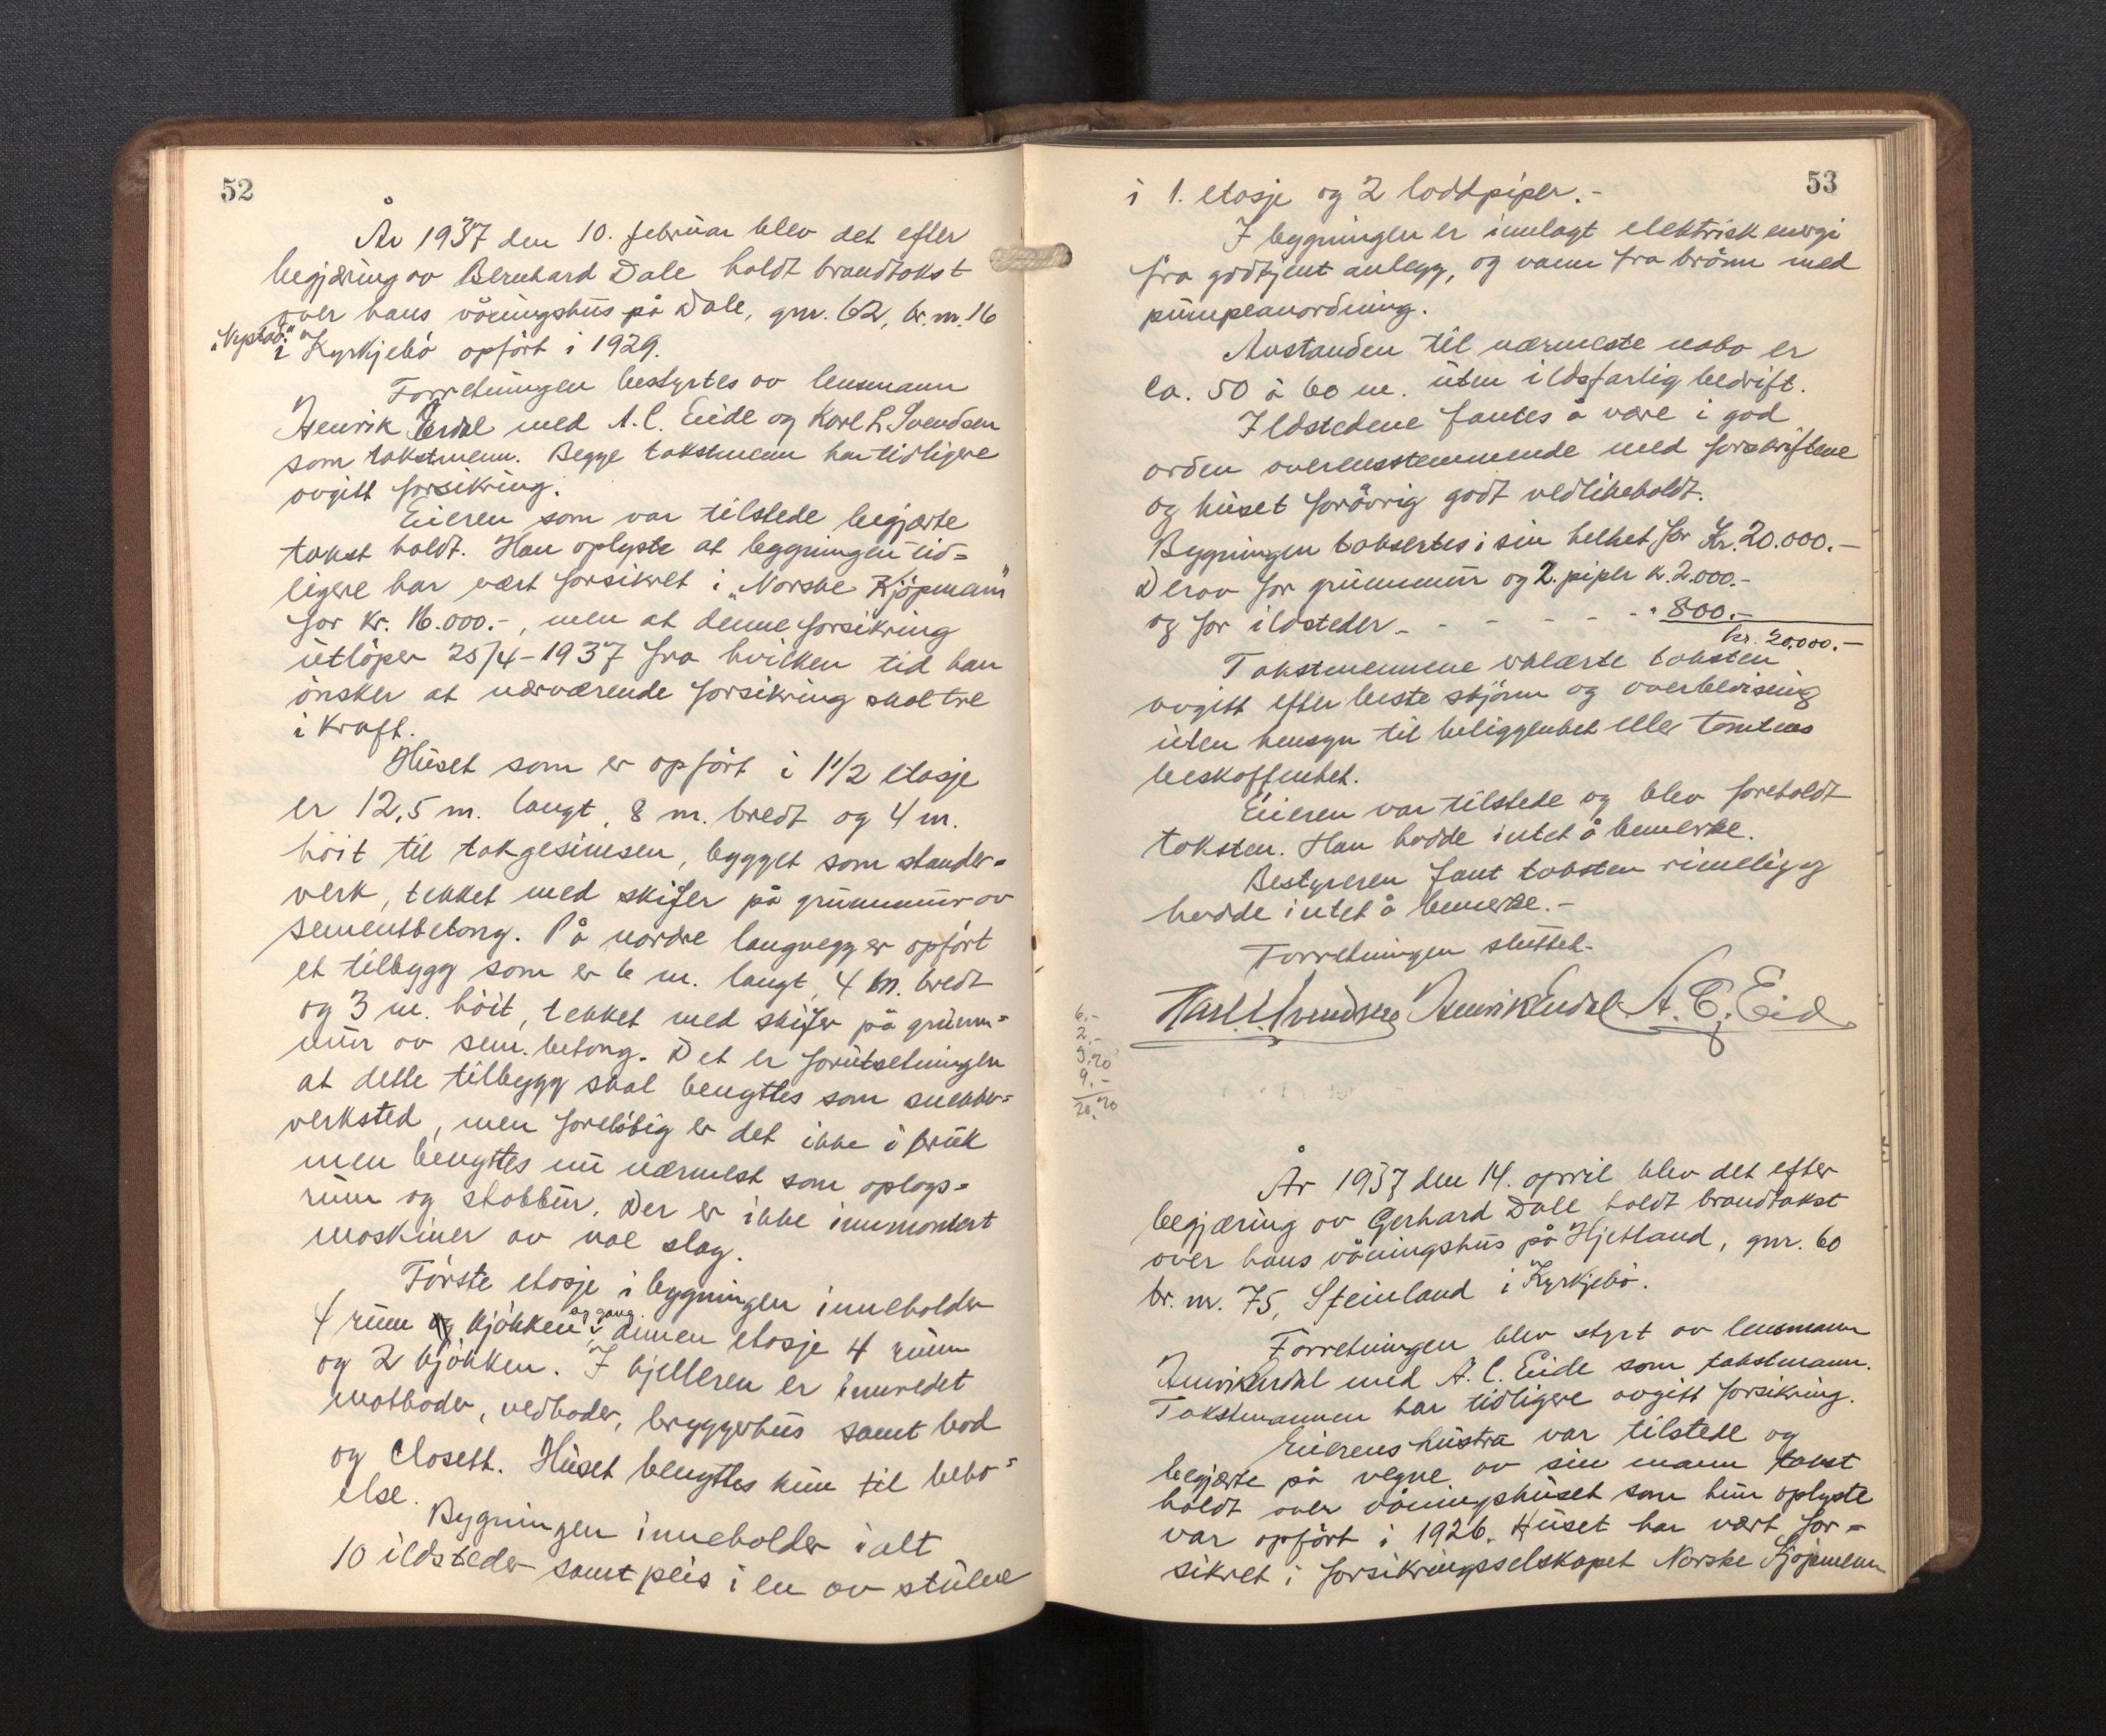 52
År 1937 den 10. februar blev det efter
begjæring av Bernhard Dale holdt brandtakst
over hans våningshus på Dale, gnr. 62, br.nr. 16
"Nystad"
i Kyrkjebö opfört i 1929.
Forretningen bestyrtes av lensmann
Henrik Erdal med A. C. Eide og Karl L. Svendsen
som takstmenn. Begge takstmenn har tidligere
avgitt forsikring.
Eieren som var tilstede begjærte
takst holdt. Han oplyste at bygningen tid=
ligere har vært forsikret i "Norske Kjöpmann"
for kr. 16.000.-, men at denne forsikring
utlöper 25/4-1937 fra hvilken tid han
önsker at nærværende forsikring skal tre
i kraft.
Huset som er opfört i 1 1/2 etasje
er 12,5 m. langt, 8 m. bredt og 4 m.
höit til takgesimsen, bygget som stander=
verk, tekket med skifer på grunnmur av
sementbetong. På nordre langvegg er opfört
et tilbygg som er 6 m. langt, 4 m. bredt
og 3 m. höit, tekket med skifer på grunn=
mur av sem. betong. Det er forutsetningen
at dette tilbygg skal benyttes som snekker=
verksted, men forelöbig er det ikke i bruk
men benyttes nu nærmest som oplags=
rum og stabbur. Der er ikke innmontert
maskiner av noe slag.
Förste etasje i bygningen inneholder
og gang
4 rum og kjökken, annen etasje 4 rum
og 2 kjökken. I kjelleren er innredet
matboder, vedboder, bryggerhus samt bod
og closett. Huset benyttes kun til bebo=
else.
Bygningen inneholder ialt
10 ildsteder samt peis i en av stuene
53
i 1. etasje og 2 loddpiper.-
I bygningen er innlagt elektrisk energi
fra godkjent anlegg, og vann fra brönn med
pumpeanordning.
Avstanden til nærmeste nabo er
ca. 50 à 60 m. uten ildsfarlig bedrift.
Ildstedene fantes å være i god
orden overensstemmende med forskriftene
og huset forövrig godt vedlikeholdt.
Bygningen taksertes i sin helhet for Kr. 20.000.-
Derav for grunnmur og 2. piper k. 2.000.-
og for ildsteder - - - - - - " 800.-
kr. 20.000.-
Takstmennene erklærte taksten
avgitt efter beste skjönn og overbevisning
uten hensyn til beliggenhet eller tomtens
beskaffenhet.
Eieren var tilstede og blev foreholdt
taksten. Han hadde intet å bemerke.
Bestyreren fant taksten rimelig og
hadde intet å bemerke.-
Forretningen sluttet.
Karl L. Svendsen Henrik Erdal A. C. Eide
6.-
2.-
3.20
9.-
20.20
År 1937 den 14. april blev det efter
begjæring av Gerhard Dale holdt brandtakst
over hans våningshus på Hjetland, gnr. 60
br. nr. 75, Steinland i Kyrkjebö.
Forretningen blev styrt av lensmann
Henrik Erdal med A. C. Eide som takstmann.
Takstmannen har tidligere avgitt forsikring.
Eierens hustru var tilstede og
begjærte på vegne av sin mann takst
holdt over våningshuset som hun oplyste
var opfört i 1926. Huset har vært for=
sikret i forsikringsselskapet Norske Kjöpmenn